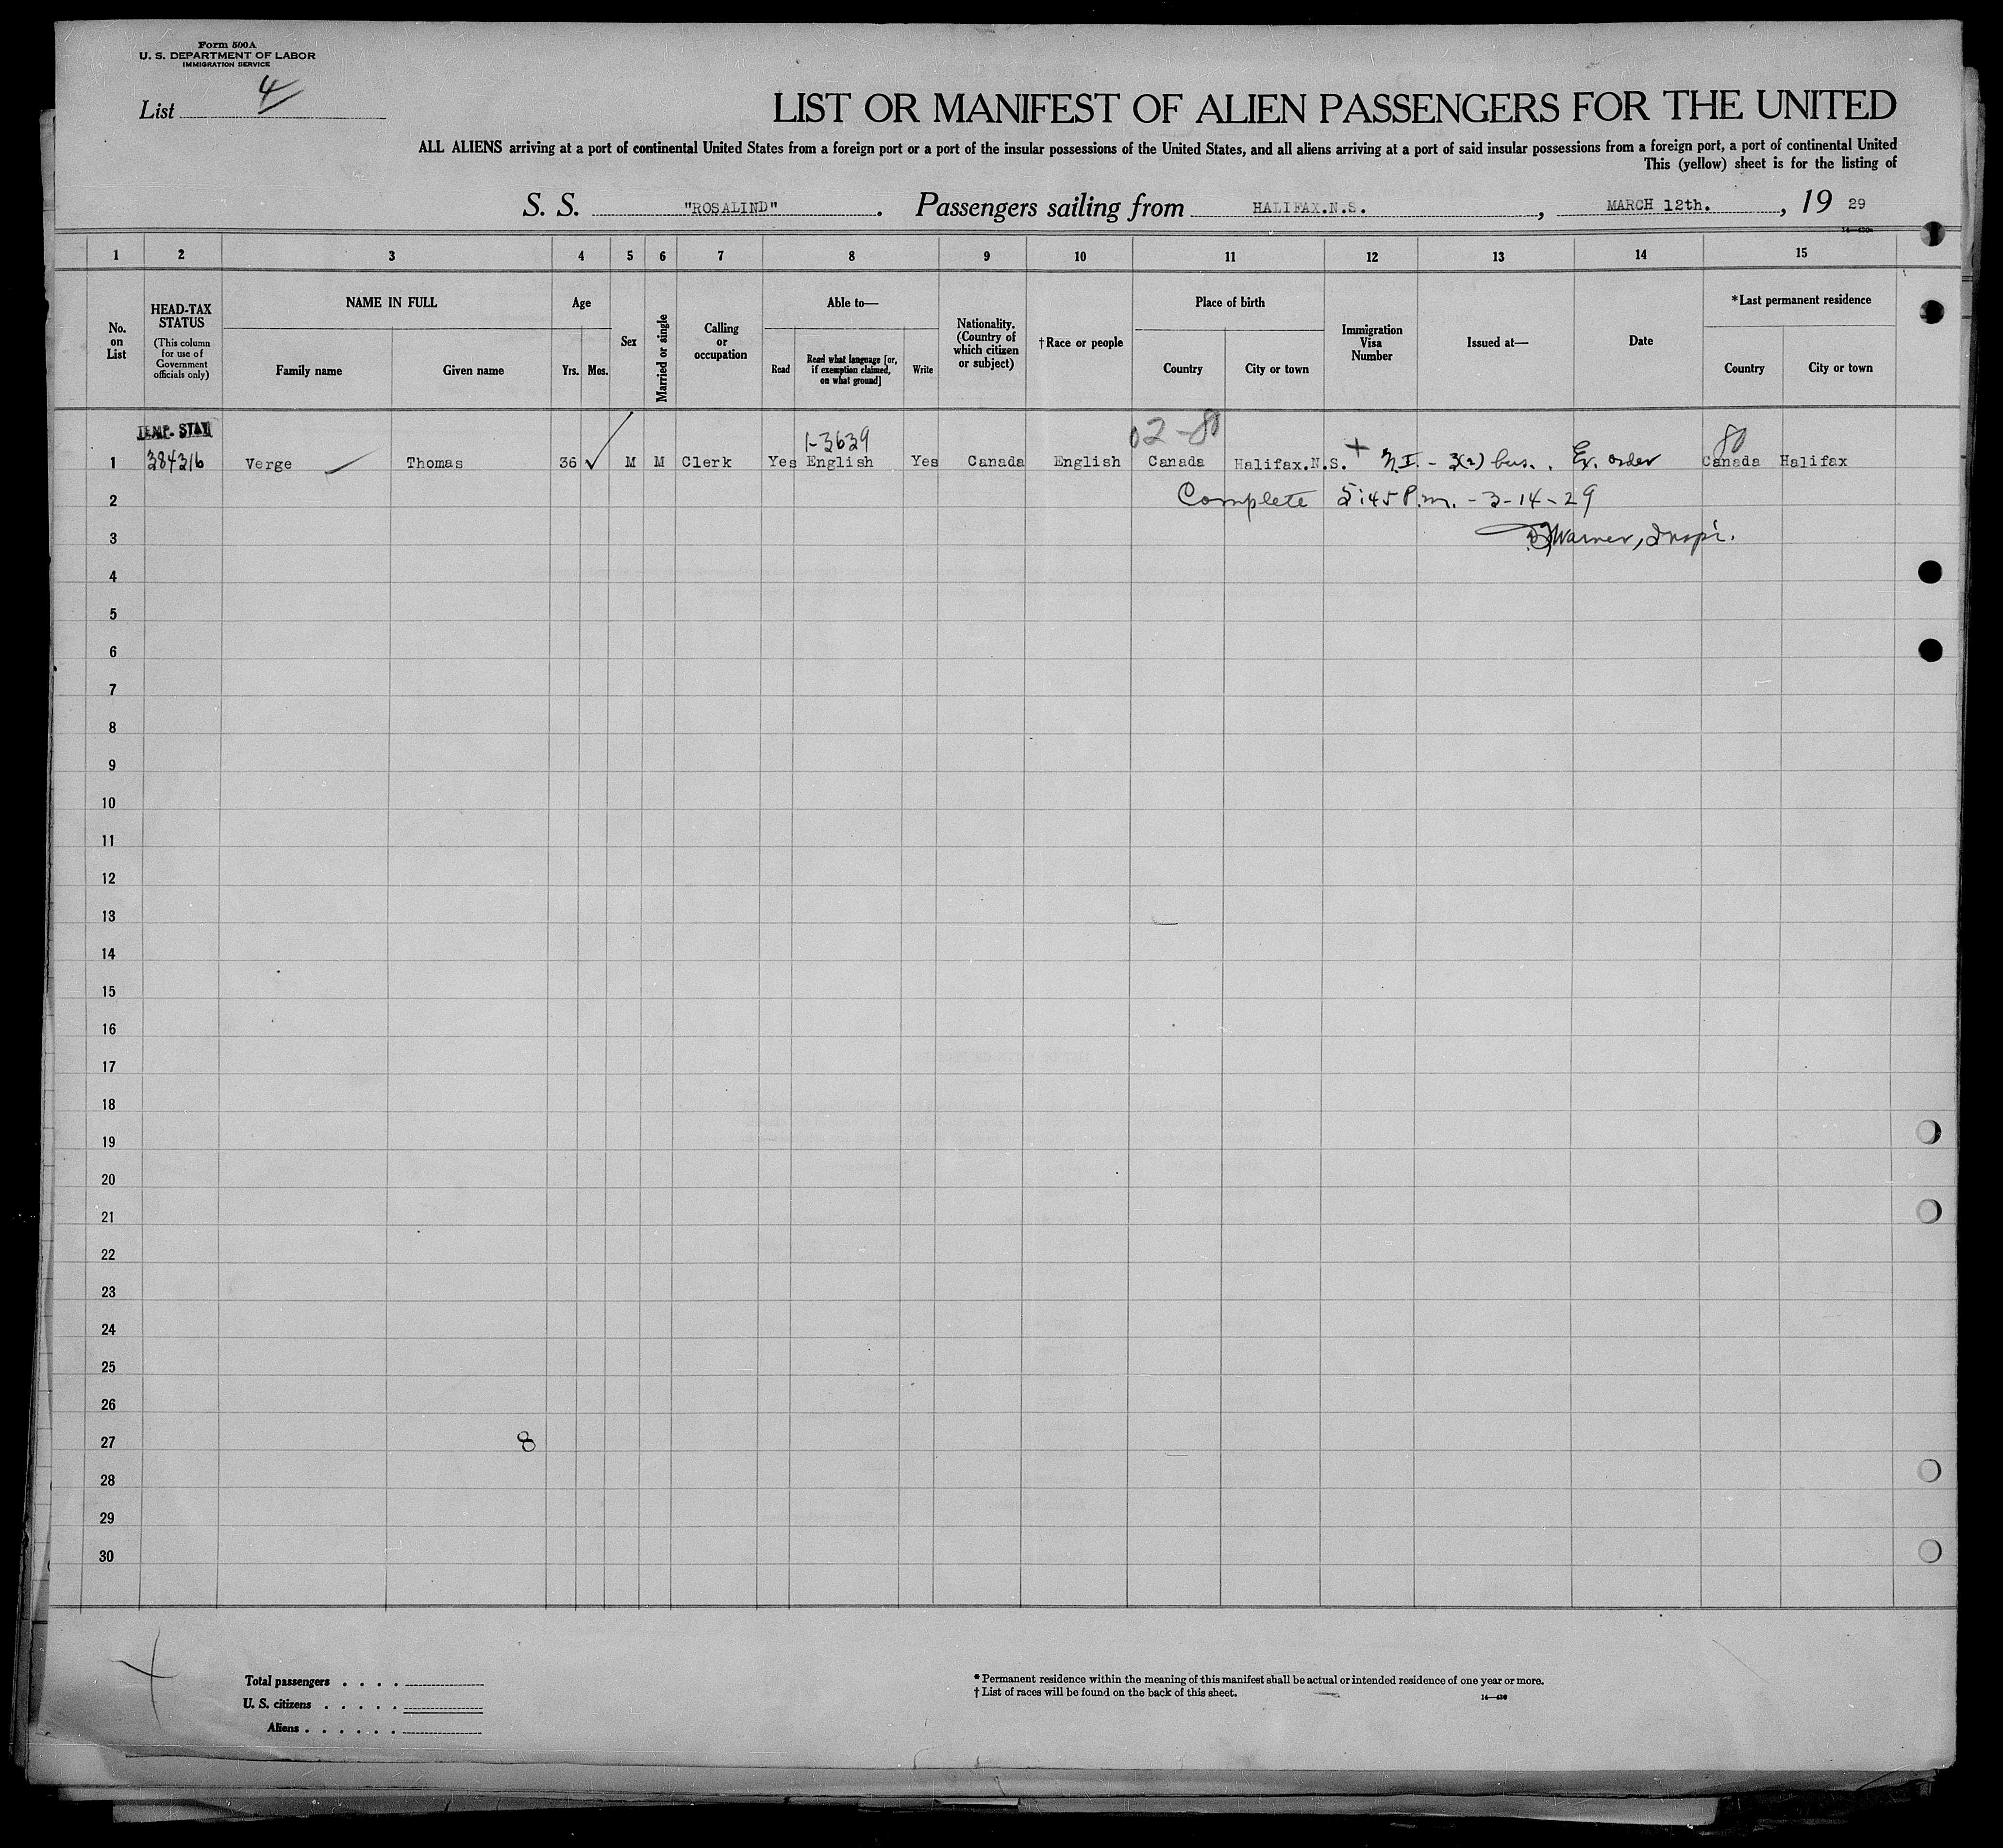 Form 500A
U. S. DEPARTMENT OF LABOR
IMMIGRATION SERVICE
List 4
LIST OR MANIFEST OF ALIEN PASSENGERS FOR THE UNITED
ALL ALIENS arriving at a port of continental United States from a foreign port or a port of the insular possessions of the United States, and all aliens arriving at a port of said insular possessions from a foreign port, a port of continental United
This (yellow) sheet is for the listing of
S. S. "ROSALIND". Passengers sailing from HALIFAX.N.S., MARCH 12th., 19 29
1 2 3 4 5 6 7 8 9 10 11 12 13 14 15
No. on List
HEAD-TAX STATUS (This column for use of Government officials only)
NAME IN FULL
Family name Given name
Age
Yrs. Mos.
Sex
Married or single
Calling or occupation
Able to—
Read Read what language [or, if exemption claimed, on what ground] Write
Nationality. (Country of which citizen or subject)
†Race or people
Place of birth
Country City or town
Immigration Visa Number
Issued at—
Date
*Last permanent residence
Country City or town
TEMP. STAY 1-3639 02-80 80
1 384316 Verge Thomas 36 ✓ M M Clerk Yes English Yes Canada English Canada Halifax.N.S. + N.I. - 3(2) bus. Ex. order Canada Halifax
2 Complete 5:45 P.m. - 3-14-29
3 Warner, Inspr.
4
5
6
7
8
9
10
11
12
13
14
15
16
17
18
19
20
21
22
23
24
25
26
27 8
28
29
30
Total passengers . . . .
U. S. citizens . . . . .
Aliens . . . . . .
* Permanent residence within the meaning of this manifest shall be actual or intended residence of one year or more.
† List of races will be found on the back of this sheet.